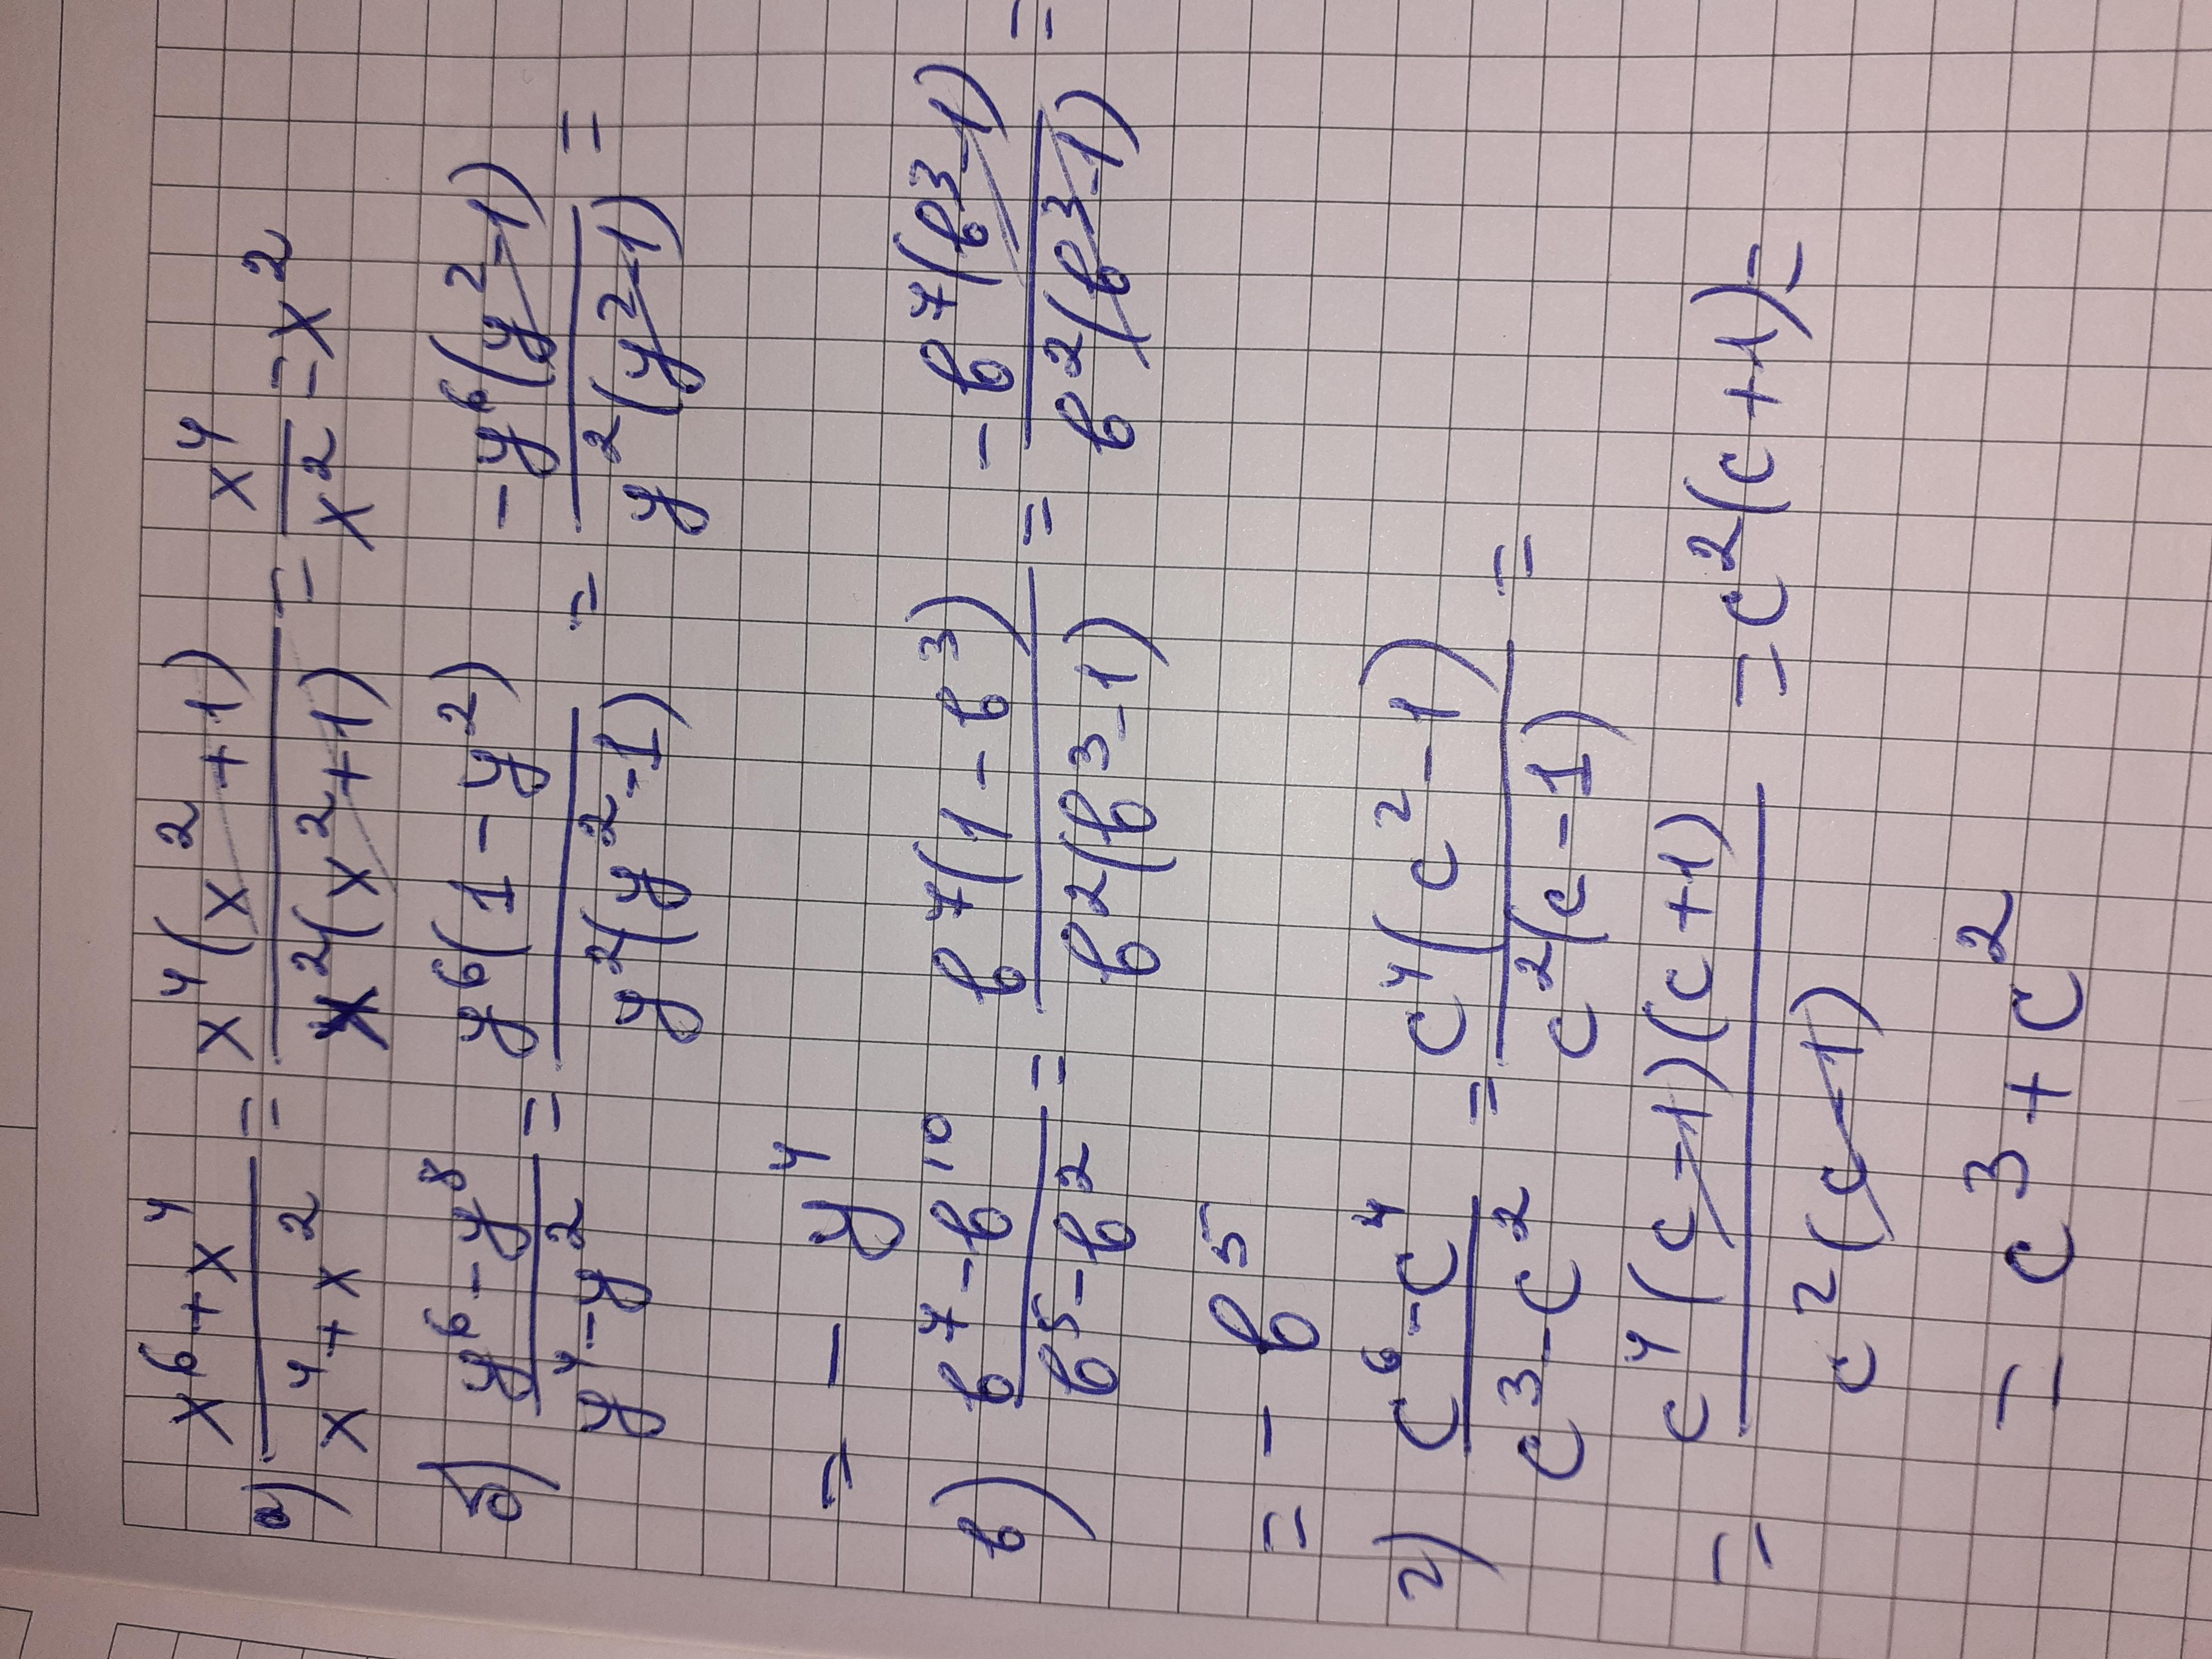 а) (x⁶+x⁴)/(x⁴+x²) = (x⁴(x²+1))/(x²(x²+1)) = x⁴/x² = x²
б) (y⁶-y⁸)/(y⁴-y²) = (y⁶(1-y²))/(y²(y²-1)) = (-y⁶(y²-1))/(y²(y²-1)) =
= -y⁴
в) (в⁷-в¹⁰)/(в⁵-в²) = (в⁷(1-в³))/(в²(в³-1)) = (-в⁷(в³-1))/(в²(в³-1)) =
= -в⁵
г) (c⁶-c⁴)/(c³-c²) = (c⁴(c²-1))/(c²(c-1)) =
= (c⁴(c-1)(c+1))/(c²(c-1)) = c²(c+1)=
= c³+c²